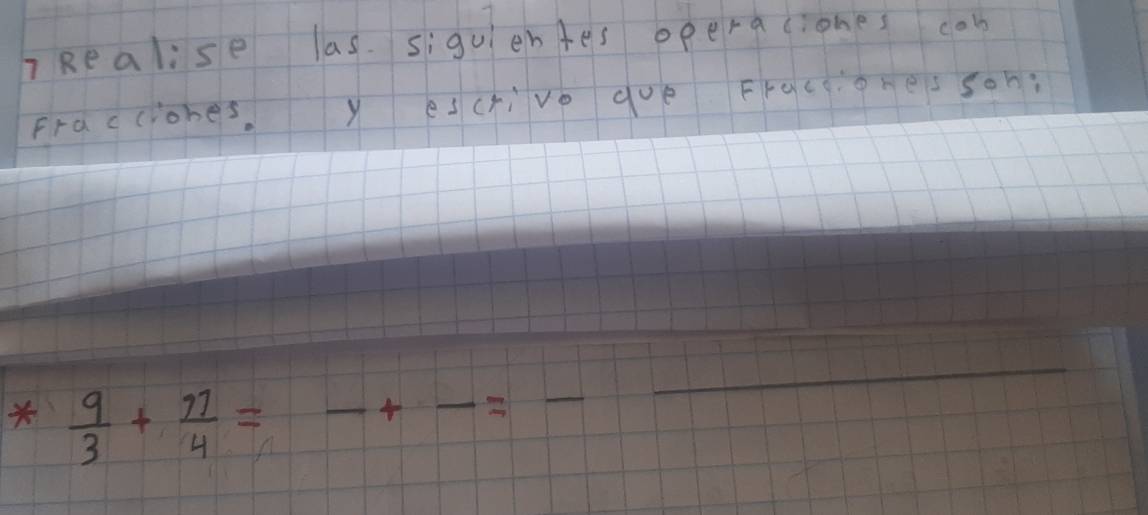 1 Realise las siguientes operaciones con
Fracciones. y escrivo que Fracciones son:
* 9/3 + 11/4 = — + — = — ______